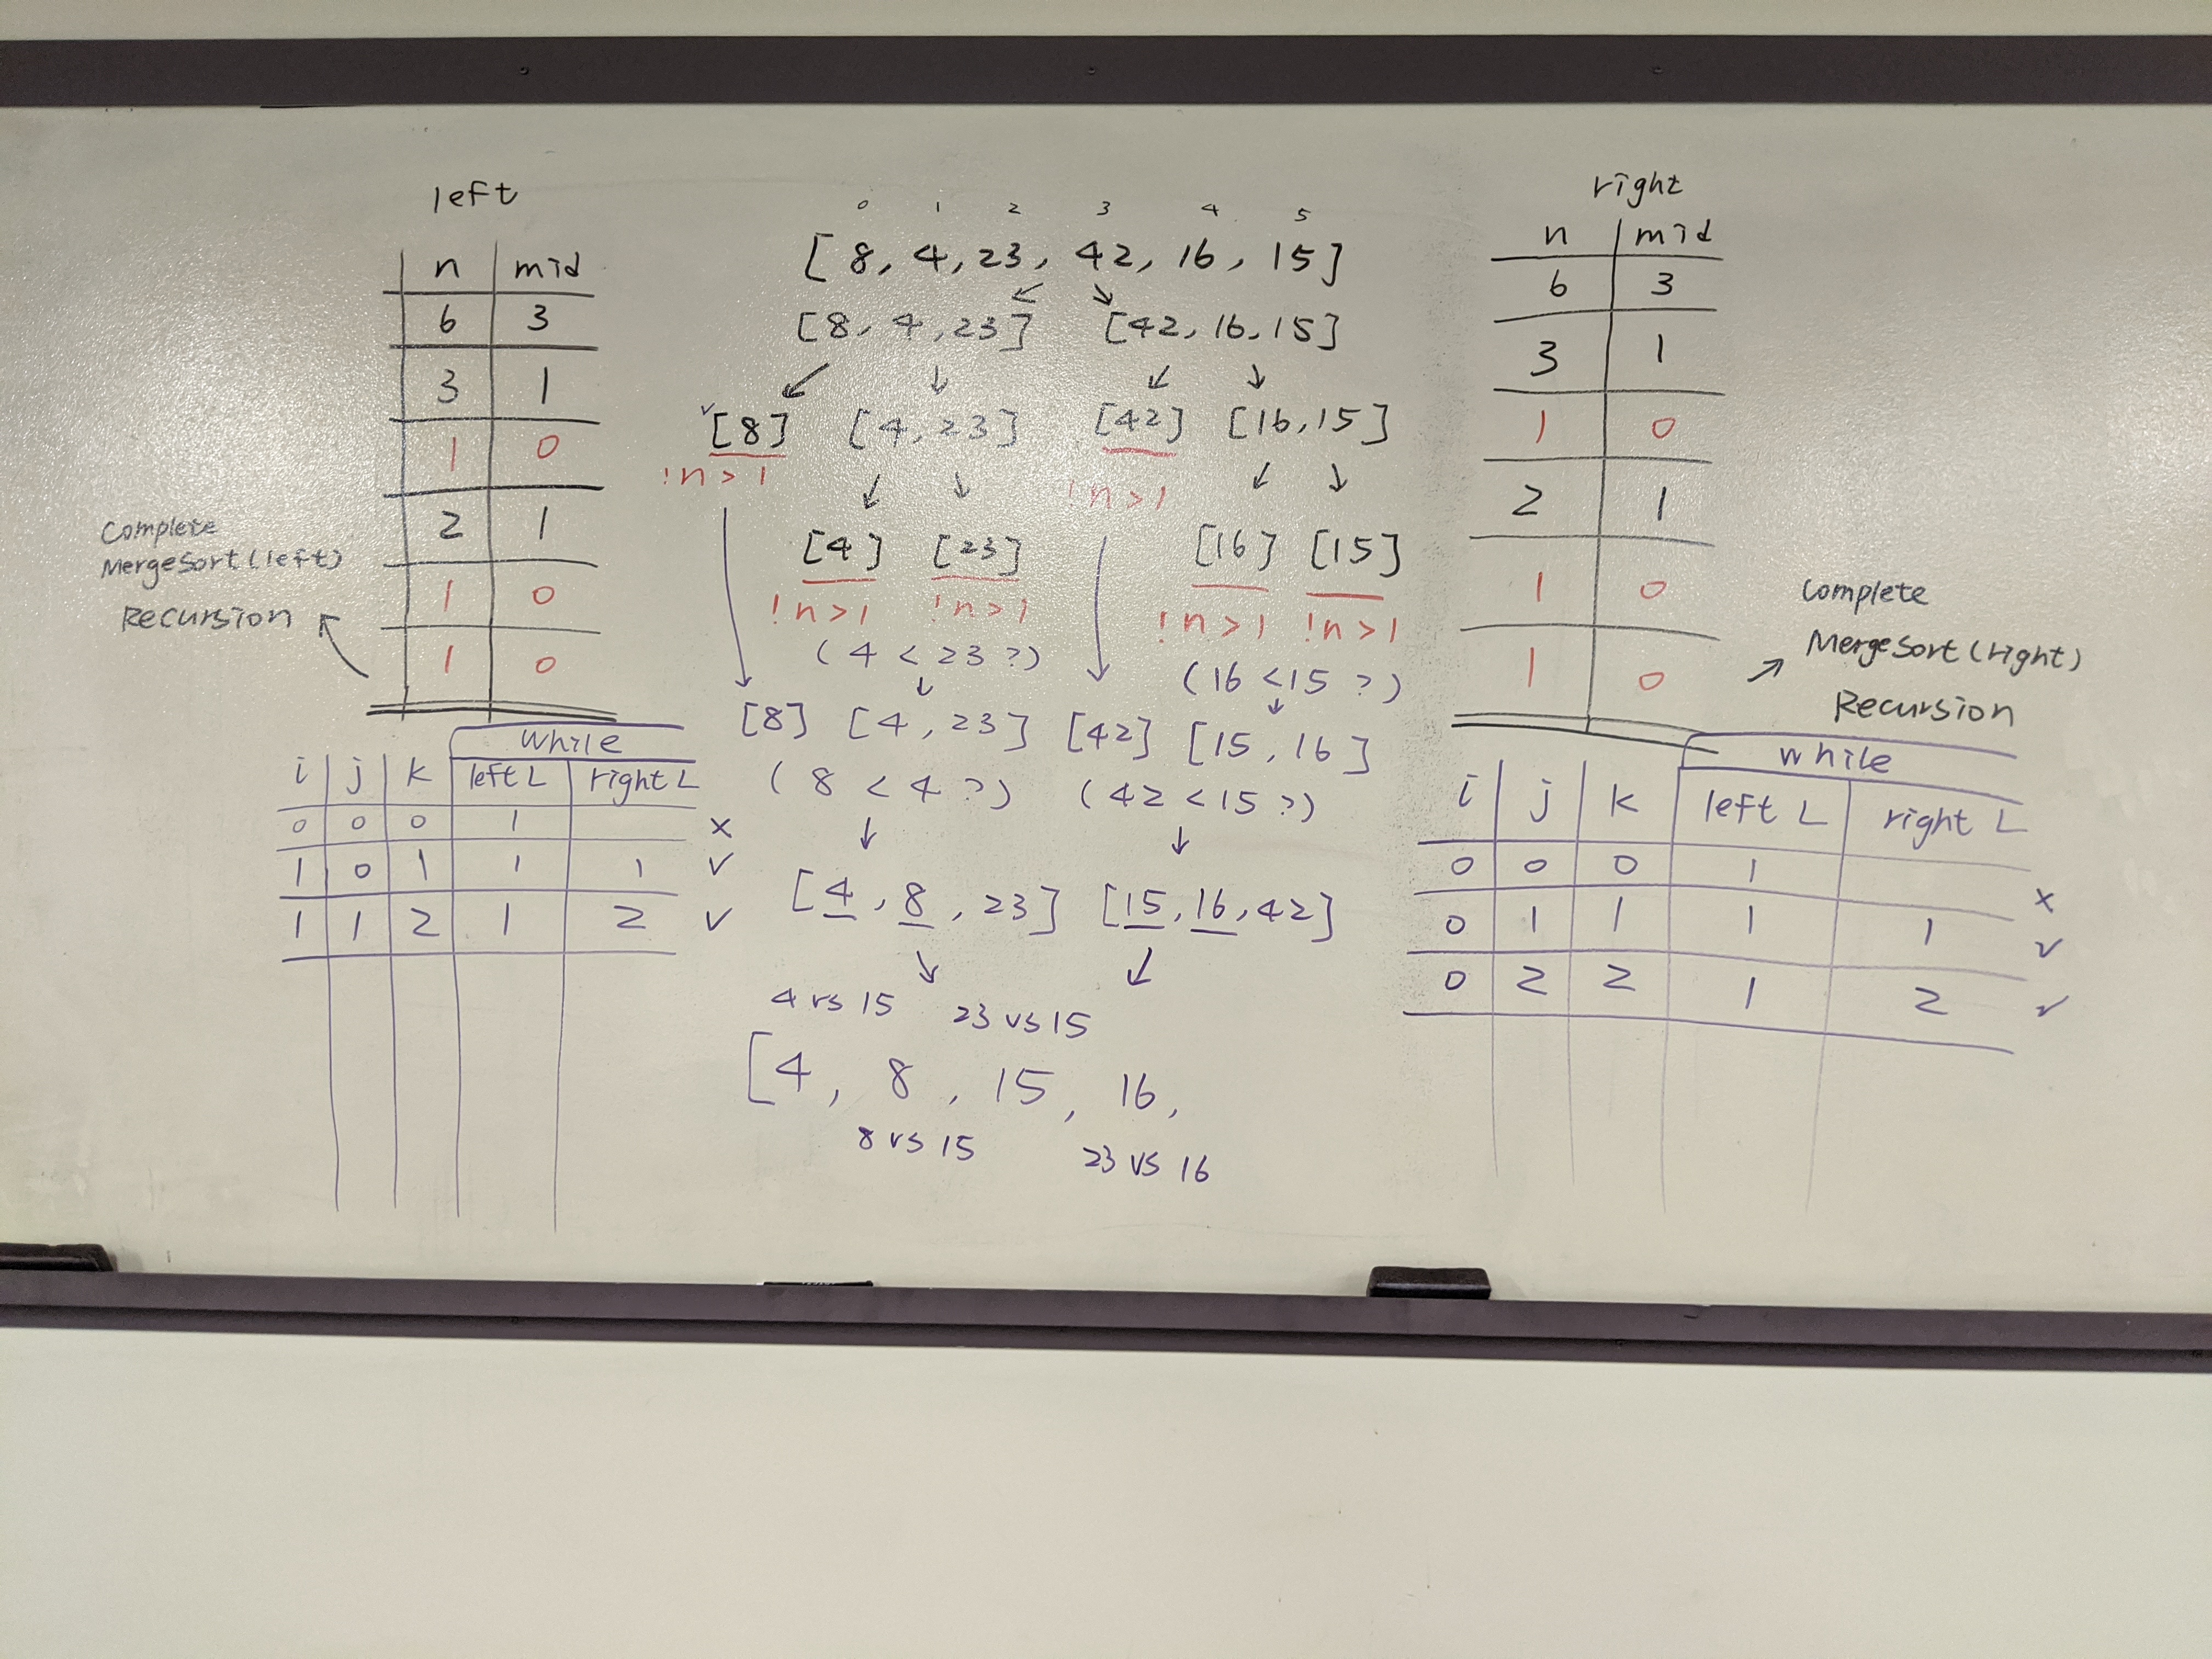 left
n mid
6 3
3 1
1 0
2 1
1 0
1 0
Complete
MergeSort(left)
Recursion
while
i j k left L right L
0 0 0 1 x
1 0 1 1 1 ✓
1 1 2 1 2 ✓
0 1 2 3 4 5
[8, 4, 23, 42, 16, 15]
↙ ↘
[8, 4, 23] [42, 16, 15]
↙ ↓ ↙ ↘
✓[8] [4, 23] [42] [16, 15]
!n>1 !n>1
↙ ↘ ↙ ↘
[4] [23] [16] [15]
!n>1 !n>1 !n>1 !n>1
(4 < 23 ?) (16 < 15 ?)
↓ ↓
[8] [4, 23] [42] [15, 16]
(8 < 4 ?) (42 < 15 ?)
↓ ↓
[4, 8, 23] [15, 16, 42]
↘ ↙
4 vs 15 23 vs 15
[4, 8, 15, 16,
8 vs 15 23 vs 16
right
n mid
6 3
3 1
1 0
2 1
1 0
1 0
Complete
MergeSort(right)
Recursion
while
i j k left L right L
0 0 0 1 x
0 1 1 1 1 ✓
0 2 2 1 2 ✓